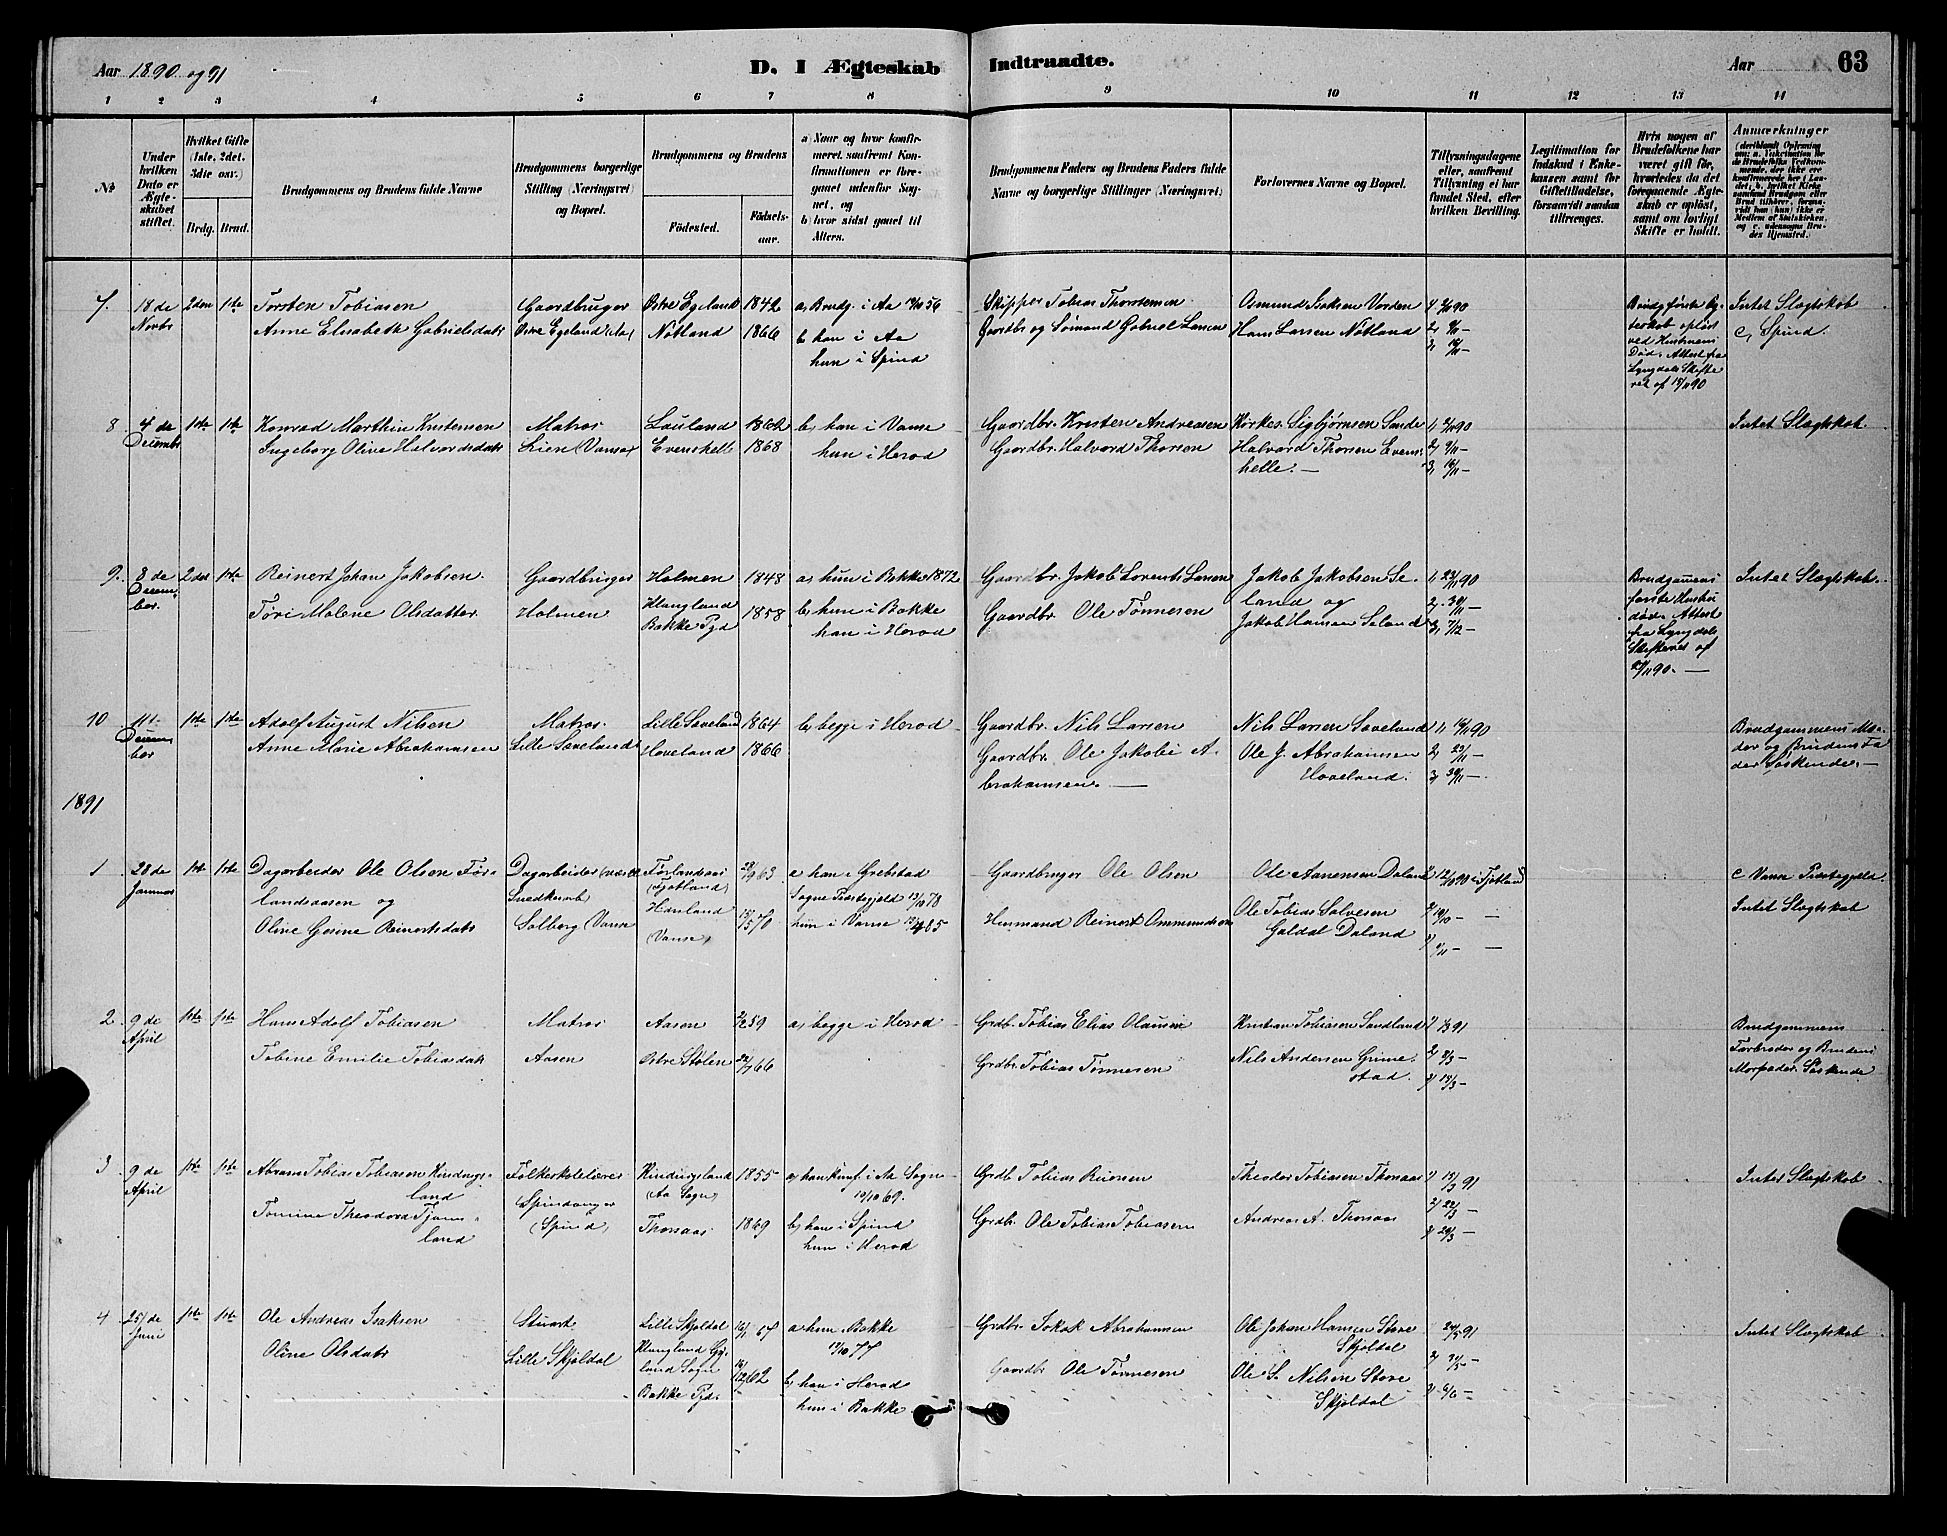 Aar 1890 og 91
D. I Ægteskab Indtraadte.
Aar
63
1 2 3 4 5 6 7 8 9 10 11 12 13 14
No
Under hvilken Dato er Ægteskabet stiftet.
Hvilket Gifte (1ste, 2det, 3die osv.)
Brdg. Brud.
Brudgommens og Brudens fulde Navne
Brudgommens borgerlige Stilling (Næringsvei) og Bopæl.
Brudgommens og Brudens
Födested.
Födselsaar.
a) Naar og hvor konfirmeret, saafremt Konfirmationen er foregaaet udenfor Sognet, og
b) hvor sidst gaaet til Alters.
Brudgommens Faders og Brudens Faders fulde Navne og borgerlige Stillinger (Næringsvei)
Forlovernes Navne og Bopæl.
Tillysningsdagene eller, saafremt Tillysning ei har fundet Sted, efter hvilken Bevilling.
Legitimation for Indskud i Enkekassen samt for Giftetilladelse, forsaavidt saadan tiltrænges.
Hvis nogen af Brudefolkene har været gift før, hvorledes da det foregaaende Ægteskab er opløst, samt om lovligt Skifte er holdt.
Anmærkninger
7. 18de Novbr 2den 1ste
Torsten Tobiasen Gaardbruger Østre Egeland 1842 a, Brudg. i Aa 56
Anne Elisabeth Gabrielsdatr Østre Egeland (Aa) Nøtland 1866 b, han i Aa
hun i Spind
Skipper Tobias Thorstensen Osmund Isaksen Vorden 1, 2/11 90
Gaardbr og Sömand Gabriel Larsen Hans Larsen Nøtland 2, 9/11 —
3, 16/11 —
Brudg første Ægteskab opløst ved Hustruens Död. Attest fra Lyngdals Skifteret af 90
Intet Slægtskab
c, Spind.
8 4de Decembr 1ste 1ste
Konrad Marthin Kristensen Matros Lauland 1862 b, han i Vanse
Ingeborg Olive Halvordsdatr Lien (Vanse) Evenshelle 1868 hun i Herod
Gaardbr. Kristen Andreasen Kirkes. Sigbjørnsen Sande 1, 2/11 90
Gaardbr. Halvord Thorsen Halvord Thorsen Evenshelle. — 2, 9/11 —
3, 16/11 —
Intet Slægtskab.
9. 8de December 2det 1ste
Reinert Johan Jakobsen. Gaardbruger Holmen 1848 a, hun i Bakke 1872
Tori Malene Olsdatter Holmen Klungland Bakke Pgd 1858 b, hun i Bakke
han i Herod
Gaardbr. Jakob Lorents Larsen Jakob Jakobsen Seland og 1, 23/11 90
Gaardbr. Ole Tönnesen Jakob Hansen Seland 2, 30/11 —
3, 7/12 —
Brudgommens første Hustru død. Attest fra Lyngdals Skifteret af 90. —
Intet Slægtskab.
10 11te December 1ste 1ste
Adolf August Nilsen Matros Lille Saveland 1864 b, begge i Herod
Anne Marie Abrahamsen Lille Saveland Hoveland 1866
Gaardbr. Nils Larsen Nils Larsen Saveland 1, 16/11 90
Gaardbr. Ole Jakobi Abrahamsen. — Ole J. Abrahamsen Hoveland. 2, 23/11 —
3, 30/11 —
Brudgommens Moder og Brudens Fader Søskende. —
1891
1 28de Januar 1ste 1ste
Dagarbeider Ole Olsen Førlandsaasen og Dagarbeider Førlandsaas (Fjotland) 63 a han i Grebstad Sogns Præstegjeld 78
Olive Gesine Reinertsdatr Solberg (Vanse Hauland (Vanse) 70 hun i Vanse 85
Gaardbruger Ole Olsen Ole Aanensen Daland 12/10 90 i Fjotland
Husmand Reinert Ommundsen Ole Tobias Salvesen Galdal Daland 2) 19/10 — —
3) — —
c Vanse Præstegjeld.
Intet Slægtskab
2 9de April 1ste 1ste
Hans Adolf Tobiasen Matros Aasen 59 a, begge i Herod
Tobine Emilie Tobiasdatr Aasen Østre Stølen 66
Grdb. Tobias Elias Olausen Kristian Tobiasen Sandland 1) 91
Grdbr. Tobias Tönnesen Nils Andersen Grimestad. 2) 8/3 —
3) 15/3 —
Brudgommens Farbroder og Brudens Morfader Søskende
3 9de April 1ste 1ste
Abram Tobias Tobiasen Kindingsland Folkeskolelærer Kindingsland (Aa Sogn) 1855 a, han konf. i Aa Sogn 69.
Tomine Theodora Tjomsland Spindanger (Spind) Thorsaas 1869 b, han i Spind
hun i Herod
Grdb Tobias Theodor Tobiasen Thorsaas 1) 15/3 91
Grdbr. Ole Tobias Tobiasen Andreas A. Thorsaas 2) 22/3 —
3) 29/3 —
Intet Slægtskab
4 25de Juni 1ste 1ste
Ole Andreas Isaksen Stuart Lille Skjoldal 67 a, hun Bakke 77
Oline Olsdatr Lille Skjöldal Klungland Gyland Sogn Bakke Pgd. 62 b, han i Herod
hun i Bakke
Grdbr. Isak Abrahamsen Ole Johan Hansen Store Skjöldal 24/5 91
Gaardbr Ole Tönnesen Ole S. Nilsen Store Skjöldal 2) 31/5 —
3) —
Intet Slægtskab